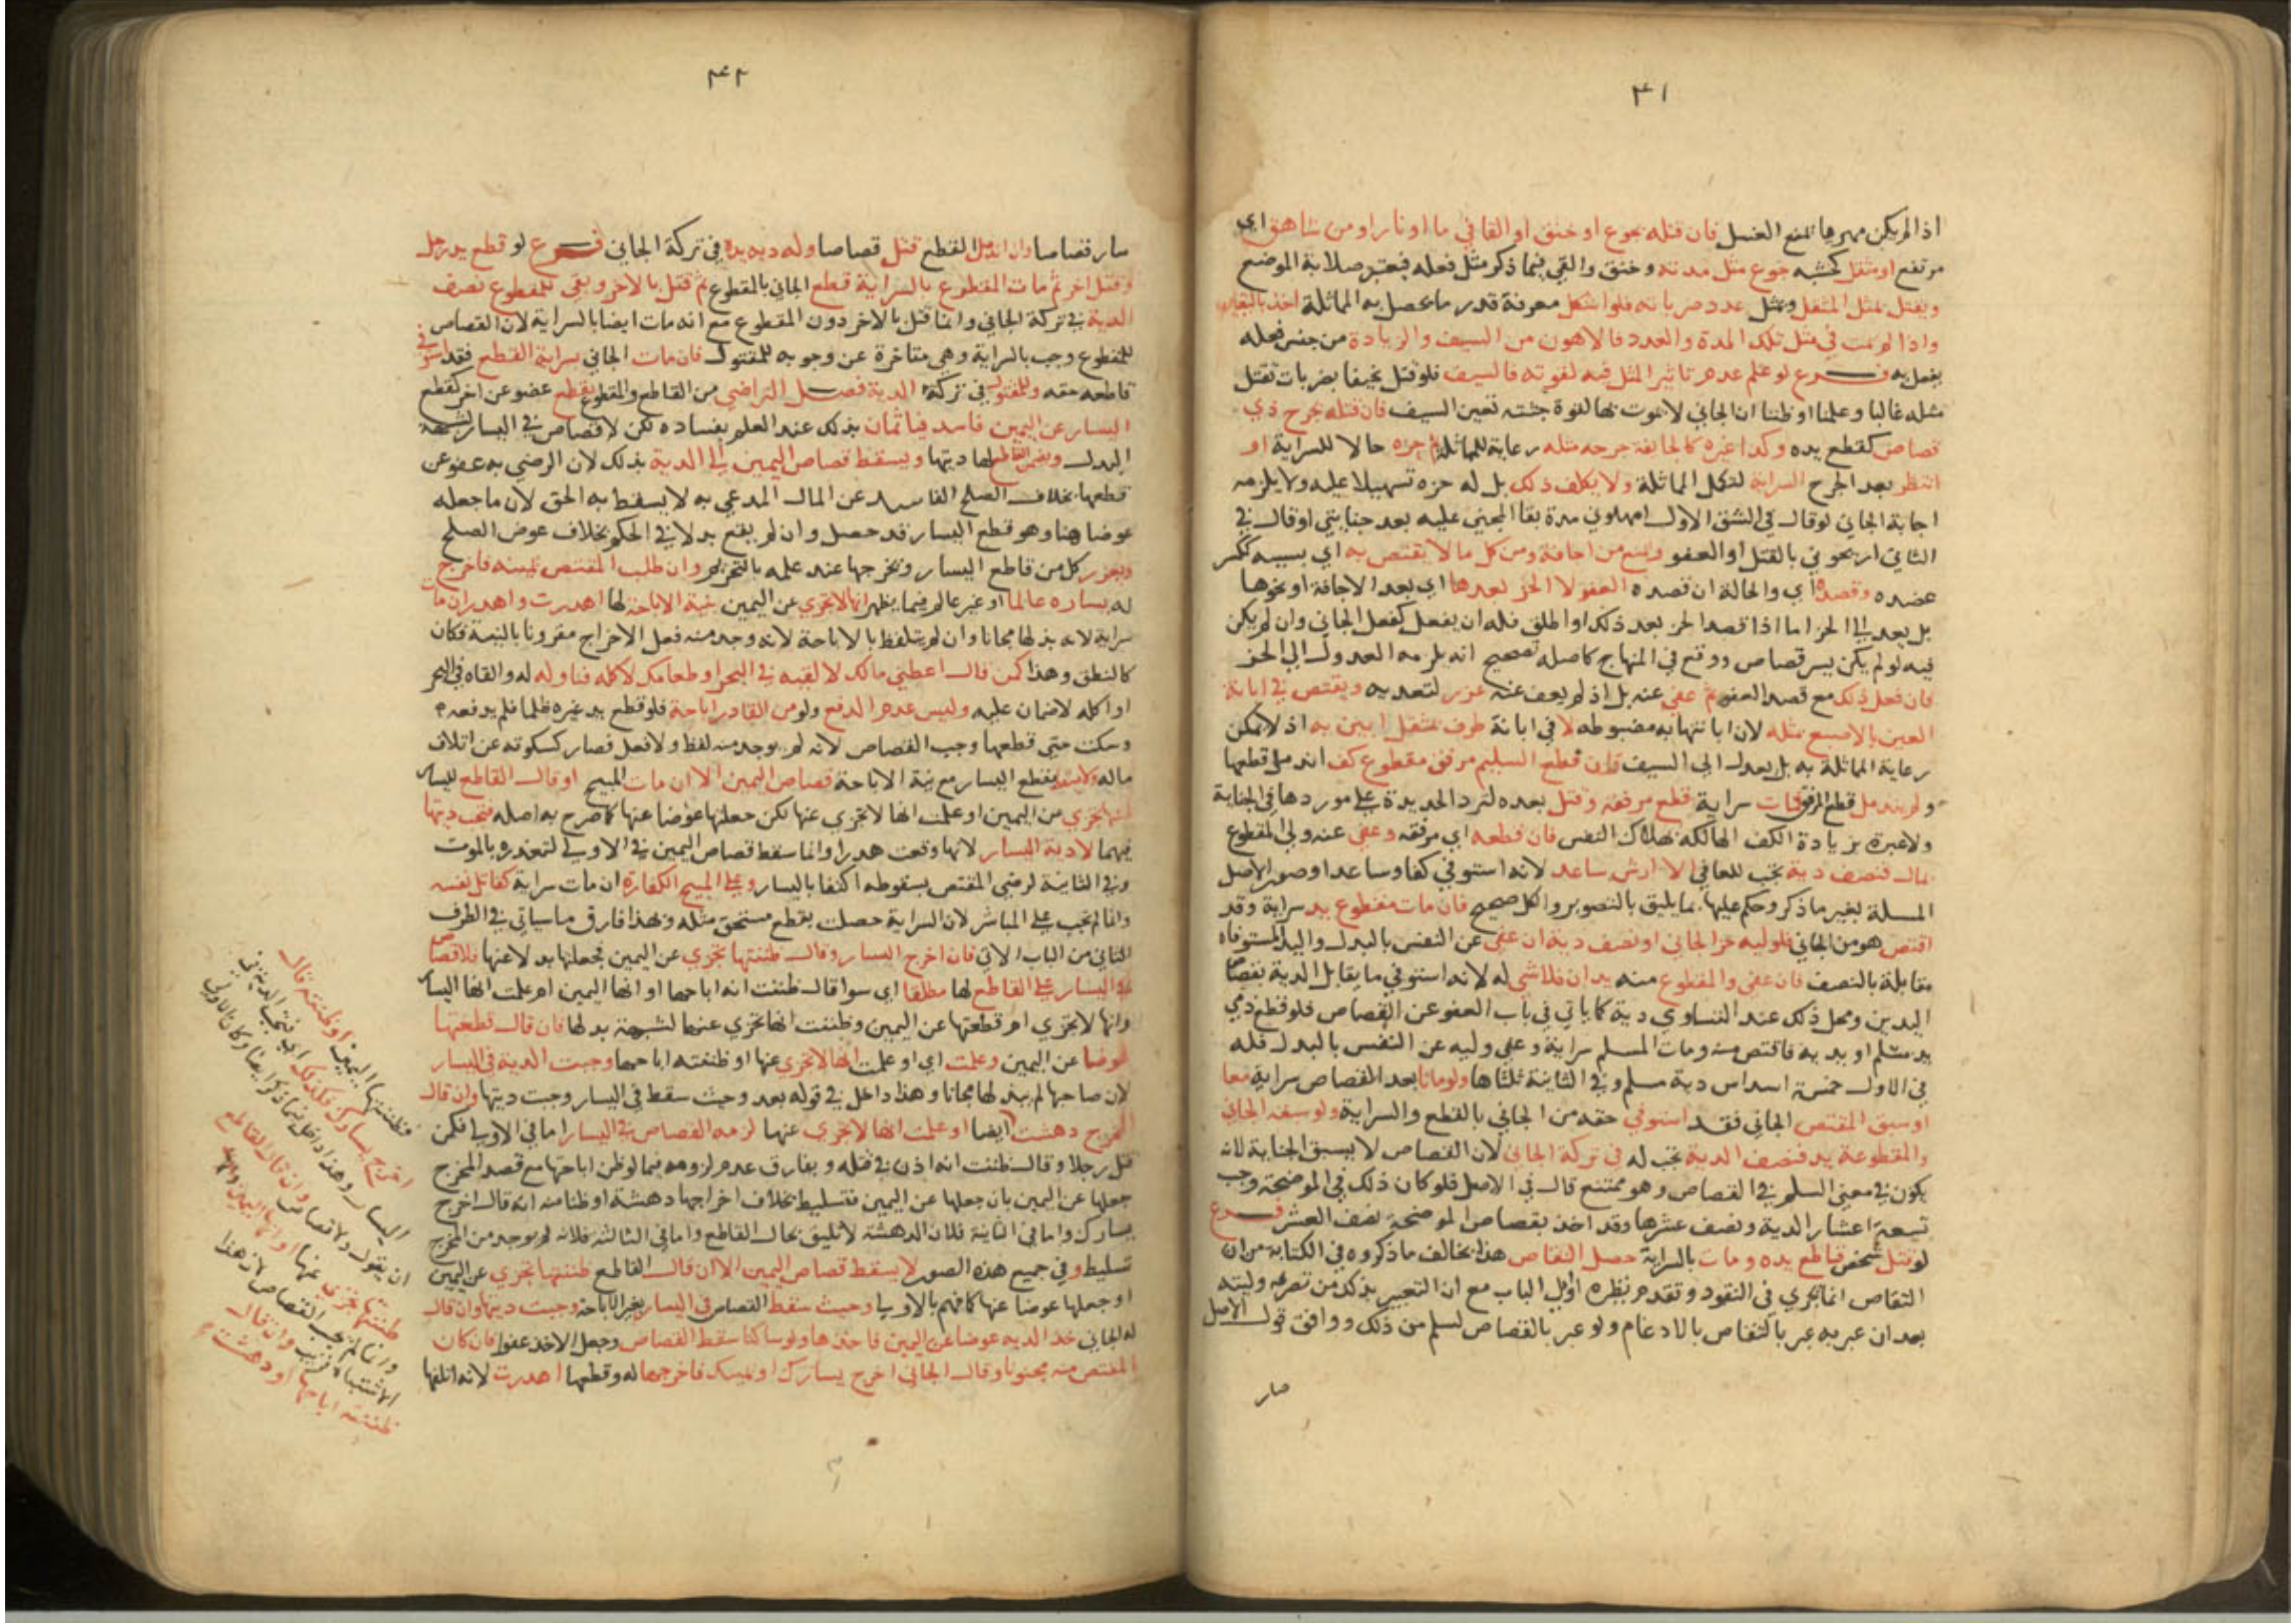 ٣١
اذا لم يكن مهريها تمنع الغسل فان قتله بجوع او خنق او القا في ما او نار او من شاهق اي
مرتفع او مثقل كخشبه جوع مثل مدته وخنق والقي فيما ذكر مثل فعله فيعتبر صلابة الموضع
ويقتل بمثل المثقل ومثل عدد ضرباته فلو اشكل معرفة قدر ما تحصل به المماثلة اخذ باليقين
واذا لم يمت في مثل تلك المدة والعدد فالاهون من السيف والزيادة من جنس فعله
يفعل به فرع لو علم عدم تاثير المثل فيه لقوته فالسيف فلو قتل نحيفا بضربات تقتل
مثله غالبا وعلمنا او ظننا ان الجاني لا يموت بها لقوة جثته تعين السيف فان قتله بجرح ذي
قصاص كقطع يده وكذا غيره كالجائفة جرحه مثله رعاية للمماثلة ثم حزه حالا للسراية او
انتظر بعد الجرح السراية لتكمل المماثلة ولا يكلف ذلك بل له حزه تسهيلا عليه ولا يلزمه
اجابة الجاني لو قال في الشق الاول امهلوني مدة بقا المجني عليه بعد جنايتي او قال في
الثاني اريحوني بالقتل او العفو ويمنع من اجافة ومن كل ما لا يقتص به اي بسببه ككسر
عضده وقصده اي والحالة ان قصده العفو لا الحز بعدها اي بعد الاجافة او نحوها
بل يعدل الي الحز اما اذا قصد الحز بعد ذلك او اطلق فله ان يفعل كفعل الجاني وان لم يكن
فيه لو لم يكن يسر قصاص ووقع في المنهاج كاصله تصحيح انه يلزمه العدول الي الحز
فان فعل ذلك مع قصد العفو ثم عفي عنه بل اذ لم يعف عنه عزر لتعديه ويقتص في ابانة
العين بالاصبع مثله لان ابانتها به مضبوطه لا في ابانة طرف بمثقل ابين به اذ لا يمكن
رعاية المماثلة به بل يعدل الي السيف فان قطع السليم مرفق مقطوع كف اندمل قطعها
ولم يندمل قطع المرفق فمات سراية قطع مرفقه وقتل بعده لترد الحديدة علي موردها في الجناية
ولا عبرة بزيادة الكف الهالكة بهلاك النفس فان قطعه اي مرفقه وعفي عنه ولي المقطوع
بمال فنصف دية تجب للعافي الا ارش ساعد لانه استوفي كفا وساعدا وصور الاصل
المسلة بغير ما ذكر وحكم عليها بما يليق بالتصوير والكل صحيح فان مات مقطوع يد سراية وقد
اقتص هو من الجاني فلوليه حز الجاني او نصف دية ان عفي عن النفس بالبدل واليد المستوفاه
مقابلة بالنصف فان عفي والمقطوع منه يدان فلا شي له لانه استوفي ما يقابل الدية بقصاص
اليدين ومحل ذلك عند التساوي دية كما ياتي في باب العفو عن القصاص فلو قطع ذمي
يد مسلم او يديه فاقتص منه ومات المسلم سراية وعفي وليه عن النفس بالبدل فله
في الاول خمسة اسداس دية مسلم وفي الثانية ثلثاها ولو ماتا بعد القصاص سراية معا
او سبق المقتص الجاني فقد استوفي حقه من الجاني بالقطع والسراية ولو سبقه الجاني
والمقطوعة يد فنصف الدية تجب له في تركة الجاني لان القصاص لا يسبق الجناية لانه
يكون في معني السلم في القصاص وهو ممتنع قال في الاصل فلو كان ذلك في الموضحة وجب
تسعة اعشار الدية ونصف عشرها وقد اخذ بقصاص الموضحة نصف العشر فرع
لو قتل شخص قاطع يده ومات بالسراية حصل التقاص هذا يخالف ما ذكروه في الكتابة من ان
التقاص انما يجري في النقود وتقدم نظيره اول الباب مع ان التعبير بذلك من تصرفه وليته
بعد ان عبر به عبر بالتقاص بالادغام ولو عبر بالقصاص لسلم من ذلك ووافق قول الاصل
صار
٣٢
صار قصاصا وان اندمل القطع قتل قصاصا وله دية يده في تركة الجاني فرع لو قطع يد رجل
وقتل اخر ثم مات المقطوع بالسراية قطع الجاني بالمقطوع ثم قتل بالاخر وبقي للمقطوع نصف
الدية في تركة الجاني وانما قتل بالاخر دون المقطوع مع انه مات ايضا بالسراية لان القصاص
للمقطوع وجب بالسراية وهي متاخرة عن وجوبه للمقتول فان مات الجاني بسراية القطع فقد استوفي
قاطعه حقه وللمقتول في تركته الدية فصل التراضي من القاطع والمقطوع بقطع عضو عن اخر كقطع
اليسار عن اليمين فاسد فياثمان بذلك عند العلم بفساده لكن لا قصاص في اليسار لشبهة
البدل ويضمن القاطع لها ديتها ويسقط قصاص اليمين الي الدية بذلك لان الرضي به عفو عن
قطعها بخلاف الصلح الفاسد عن المال المدعي به لا يسقط به الحق لان ما جعله
عوضا هنا وهو قطع اليسار قد حصل وان لم يقع بدلا في الحكم بخلاف عوض الصلح
ويعزر كل من قاطع اليسار ومخرجها عند علمه بالتحريم وان طلب المقتص يمينه فاخرج
له يساره عالما او غير عالم فيما يظهر انها لا تجزي عن اليمين بنية الاباحة لها اهدرت واهدر ان مات
سراية لانه بذلها مجانا وان لم يتلفظ بالاباحة لانه وجد منه فعل الاخراج مقرونا بالنية فكان
كالنطق وهذا كمن قال اعطني مالك لالقيه في البحر او طعامك لاكله فناوله له والقاه في البحر
او اكله لا ضمان عليه وليس عدم الدفع ولو من القادر اباحة فلو قطع يد غيره ظلما فلم يدفعه
وسكت حتي قطعها وجب القصاص لانه لم يوجد منه لفظ ولا فعل فصار كسكوته عن اتلاف
ماله ولا يسقط بقطع اليسار مع نية الاباحة قصاص اليمين الا ان مات المبيح او قال القاطع لليسار
ظننتها تجزي من اليمين او علمت انها لا تجزي عنها لكن جعلتها عوضا عنها كما صرح به اصله فتجب ديتها
فيهما لا دية اليسار لانها وقعت هدرا وانما سقط قصاص اليمين في الاولي لتعذره بالموت
وفي الثانية لرضي المقتص بسقوطه اكتفا باليسار وعلي المبيح الكفارة ان مات سراية كقاتل نفسه
وانما لم تجب علي المباشر لان السراية حصلت بقطع مستحق مثله وبهذا فارق ما سياتي في الطرف
الثاني من الباب الاتي فان اخرج اليسار وقال ظننتها تجزي عن اليمين فجعلتها بدلا عنها فلا قصاص
في اليسار علي القاطع لها مطلقا اي سوا قال ظننت انه اباحها او انها اليمين ام علمت انها اليسار
وانها لا تجزي ام قطعتها عن اليمين وظننت انها تجزي عنها لشبهة بدلها فان قال قطعتها
عوضا عن اليمين وعلمت اي او علمت انها لا تجزي عنها او ظننته اباحها وجبت الدية في اليسار
لان صاحبها لم يبذلها مجانا وهذا داخل في قوله بعد وحيث سقط في اليسار وجبت ديتها وان قال
المخرج دهشت ايضا او علمت انها لا تجزي عنها لزمه القصاص في اليسار اما في الاولي فكمن
قتل رجلا وقال ظننت انه اذن في قتله ويفارق عدم لزومه فيما لو ظن اباحتها مع قصد المخرج
جعلها عن اليمين بان جعلها عن اليمين فتسليط بخلاف اخراجها دهشة او ظنا منه انه قال اخرج
يسارك واما في الثانية فلان الدهشة لا تليق بحال القاطع واما في الثالثة فلانه لم يوجد من المخرج
تسليط وفي جميع هذه الصور لا يسقط قصاص اليمين الا ان قال القاطع ظننتها تجزي عن اليمين
او جعلها عوضا عنها كما فهم بالاولي وحيث سقط القصاص في اليسار بغير الاباحة وجبت ديتها وان قال
له الجاني خذ الدية عوضا عن اليمين فاخذها ولو ساكتا سقط القصاص وجعل الاخذ عفوا فان كان
المقتص منه مجنونا وقال الجاني اخرج يسارك او يمينك فاخرجها له وقطعها اهدرت لانه اتلفها
فظننتها اليمين او ظننته قال
اخرج يسارك فكذلك اي فتجب الدية في
اليسار وهذا داخل فيما ذكر ايضا وكان الاولي
ان يقول ولا قصاص وان قال القاطع
ظننتها تجزي عنها او انها اليمين
وانما لم يجب القصاص لان هذا
الاشتباه قريب وان قال
ظننته اباحها او دهشت